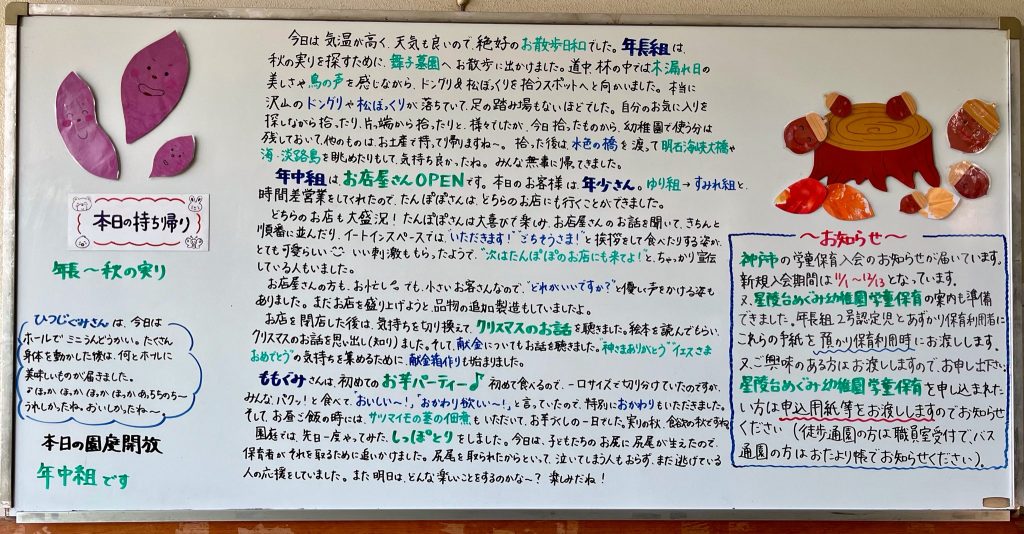 本日の持ち帰り
年長～秋の実り
ひつじぐみさんは、今日は
ホールでミニうんどうかい。たくさん
身体を動かした後は、何とホールに
美味しいものが届きました。
♪ほっかほっかほっかほっかあっちっち～
うれしかったね。おいしかったね～。
本日の園庭開放
年中組です
今日は気温が高く、天気も良いので、絶好のお散歩日和でした。年長組は、
秋の実りを探すために、舞子墓園へお散歩に出かけました。道中、林の中では木漏れ日の
美しさや鳥の声を感じながら、ドングリ&松ぼっくりを拾うスポットへと向かいました。本当に
沢山のドングリや松ぼっくりが落ちていて、足の踏み場もないほどでした。自分のお気に入りを
探しながら拾ったり、片っ端から拾ったりと、様々でしたが、今日拾ったものから、幼稚園で使う分は
残しておいて、他のものは、お土産で持って帰りますね～。拾った後は、水色の橋を渡って明石海峡大橋や
海・淡路島を眺めたりもして、気持ち良かったね。みんな無事に帰ってきました。
年中組は、お店屋さんOPENです。本日のお客様は、年少さん。ゆり組→すみれ組と、
時間差営業をしてくれたので、たんぽぽさんは、どちらのお店にも行くことができました。
どちらのお店も大盛況！たんぽぽさんは大喜びで楽しみ、お店屋さんのお話を聞いて、きちんと
順番に並んだり、イートインスペースでは、"いただきます！""ごちそうさま！"と挨拶をして食べたりする姿が、
とても可愛らしい いい刺激ももらったようで、"次はたんぽぽのお店にも来てよ！"と、ちゃっかり宣伝
している人もいました。
お店屋さんの方も、お忙し。でも、小さいお客さんなので、"どれがいいですか？"と優しい声をかける姿も
ありました。まだお店を盛り上げようと、品物の追加製造もしていましたよ。
お店を閉店した後は、気持ちを切り換えて、クリスマスのお話を聴きました。絵本を読んでもらい、
クリスマスのお話を思い出し(知り)ました。そして、献金についてもお話を聴きました。"神さまありがとう""イエスさま
おめでとう"の気持ちを集めるために、献金箱作りも始まりました。
ももぐみさんは、初めてのお芋パーティー♪ 初めて食べるので、一口サイズで切り分けていたのですが、
みんな、パクッ！と食べて、"おいしい～！""おかわり欲しい～！"と言っていたので、特別におかわりもいただきました。
そして、お昼ご飯の時には、サツマイモの茎の佃煮もいただいて、お芋づくしの一日でした。実りの秋、食欲の秋ですね
園庭では、先日一度やってみた、しっぽとりをしました。今日は、子どもたちのお尻に尻尾が生えたので、
保育者がそれを取るために追いかけました。尻尾を取られたからといって、泣いてしまう人もおらず、まだ逃げている
人の応援をしていました。また明日は、どんな楽しいことをするのかな～？楽しみだね！
～お知らせ～
神戸市の学童保育入会のお知らせが届いています。
新規入会期間は11/1～12/13となっています。
又、星陵台めぐみ幼稚園学童保育の案内も準備
できました。年長組、2号認定児とあずかり保育利用者に
これらの手紙を預かり保育利用時にお渡しします。
又、ご興味のある方はお渡ししますので、お申し出下さい。
星陵台めぐみ幼稚園学童保育を申し込まれたい
方は申込用紙等をお渡ししますのでお知らせ
ください(徒歩通園の方は職員室受付で、バス
通園の方はおたより帳でお知らせください)。